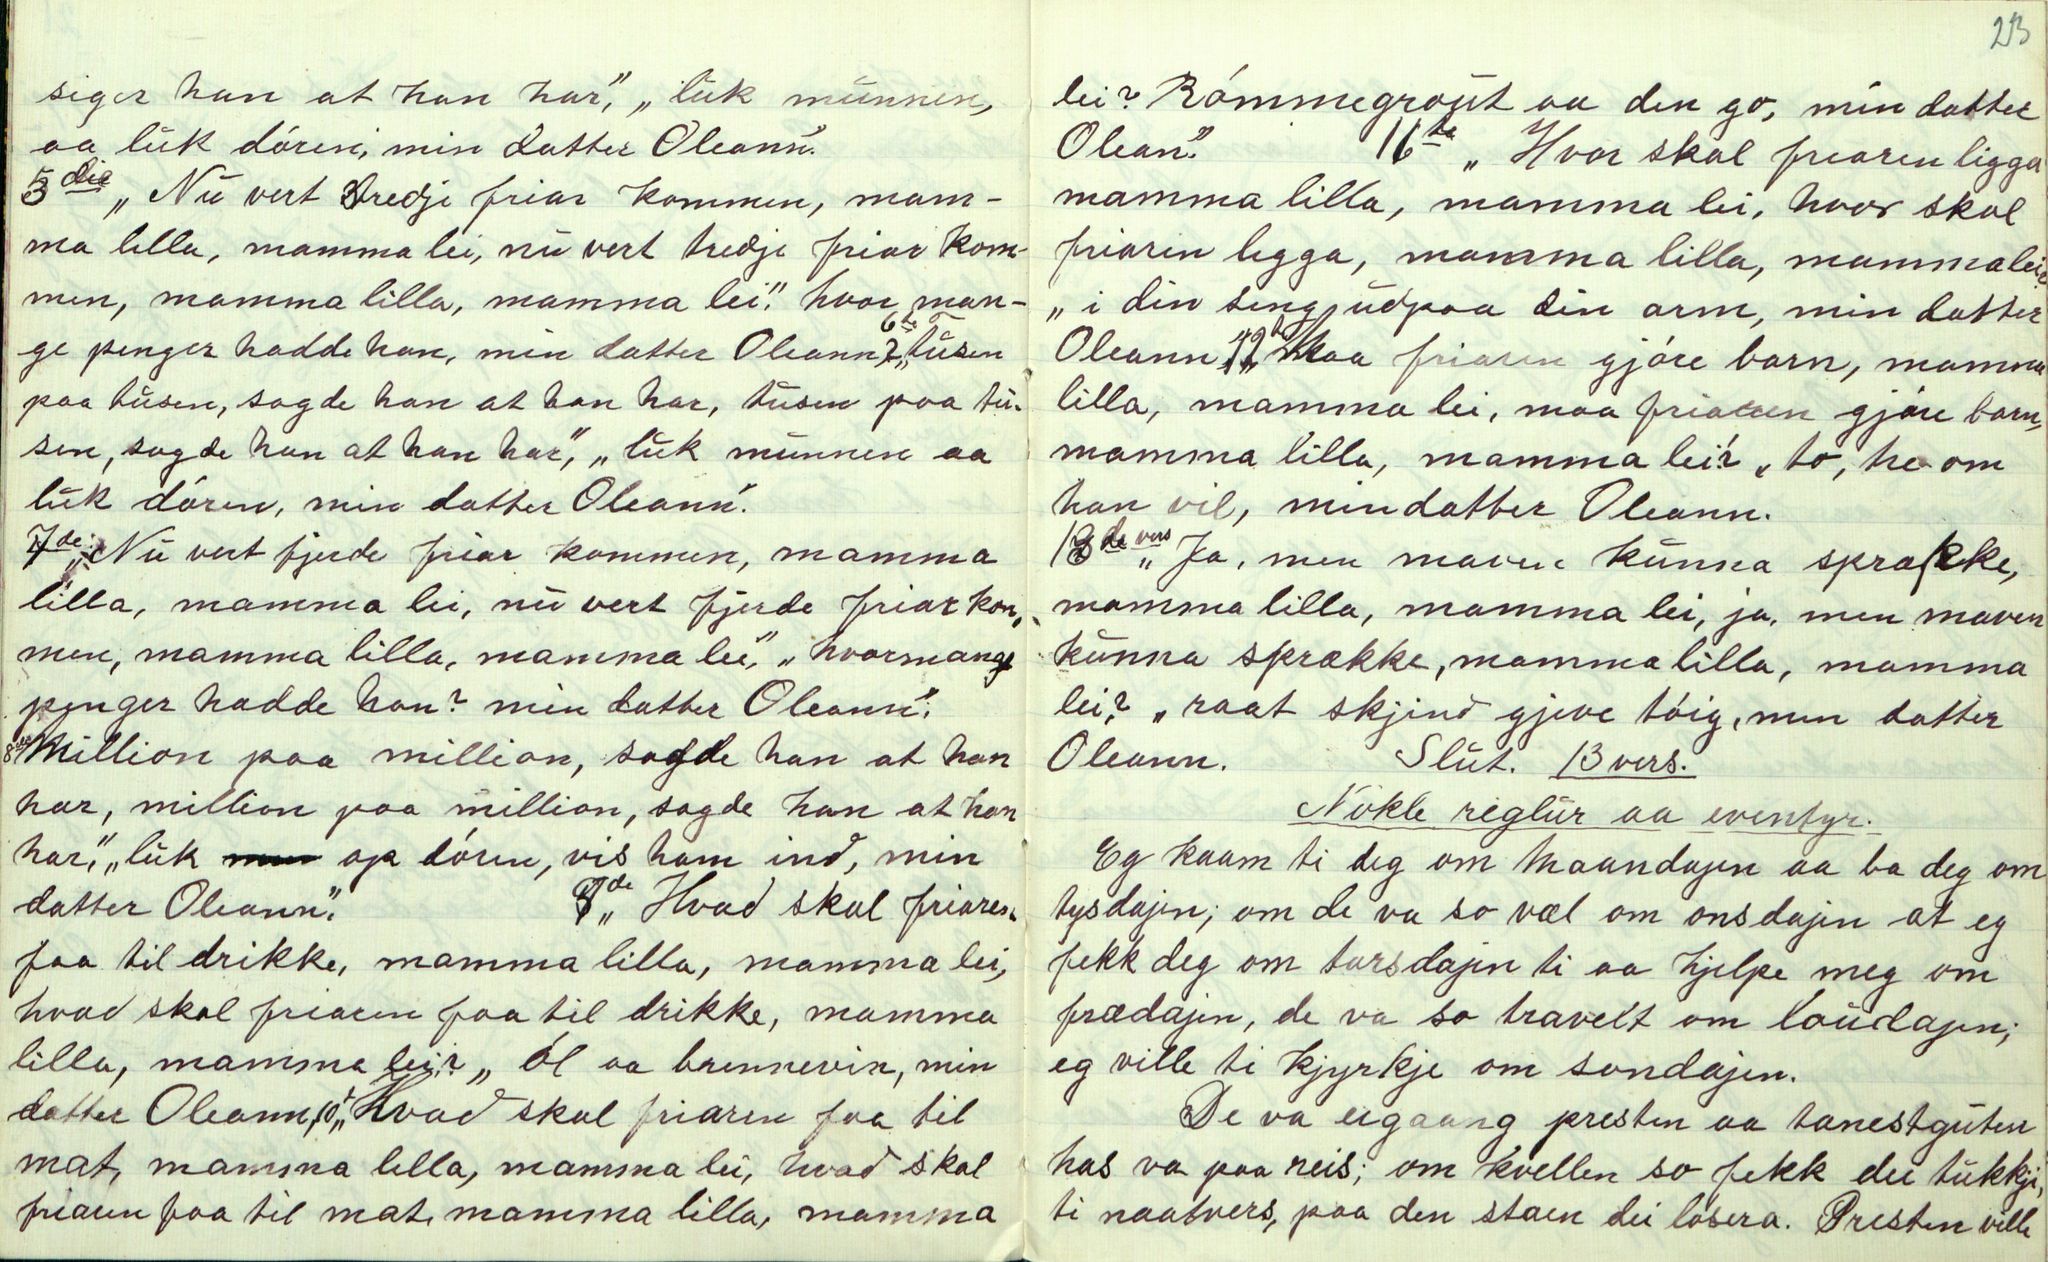 siger han at han har," „luk munnen,
aa luk dóren, min datter Oleann".
5 die „Nu vert tredje friar kommen, mam-
ma lilla, mamma lei, nu vert tredje friar kom-
men, mamma lilla, mamma lei". hvor man-
ge penger hadde han, min datter Oleann? 6te „Tusen
paa tusen, sagde han at han har, tusen paa tu-
sen, sagde han at han har", „luk munnen aa
luk dóren, min datter Oleann".
7de „Nu vert fjerde friar kommen, mamma
lilla, mamma lei, nu vert fjerde friar kom-
men, mamma lilla, mamma lei", „hvormange
penger hadde han? min datter Oleann".
8de Million paa million, sagde han at han
har, million paa million, sagde han at han
har", „luk op dóren, vis ham ind, min
datter Oleann". 9de „Hvad skal friaren
faa til drikke, mamma lilla, mamma lei,
hvad skal friaren faa til drikke, mamma
lilla, mamma lei? „Ól aa brennevin, min
datter Oleann, 10t „Hvad skal friaren faa til
mat, mamma lilla, mamma lei, hvad skal
friaren faa til mat, mamma lilla, mamma
23
lei? Rómmegraut aa den go, min datter
Olean". 11te „Hvor skal friaren ligga
mamma lilla, mamma lei, hvor skal
friaren legga, mamma lilla, mamma lei?
„i din seng, udpaa din arm, min datter
Oleann 12t „Maa friaren gjóre barn, mamma
lilla, mamma lei, maa friaren gjóre barn,
mamma lilla, mamma lei? „to, tre om
han vil, min datter Oleann.
13de vers „Ja, men maven kunna sprække,
mamma lilla, mamma lei, ja, men maven
kunna sprække, mamma lilla, mamma
lei? „raat skjind gjeve tóig, min datter
Oleann. Slut. 13 vers.
Nokle reglur aa eventyr.
Eg kaam ti deg om maandajen aa ba deg om
tysdajen; om de va so væl om onsdajen at eg
fekk deg om torsdajen ti aa hjelpe meg om
frædajen, de va so travelt om loudajen;
eg ville ti kjyrkje om sondajen.
De va eigaang presten aa tenestguten
has va paa reis; om kvellen so fekk dei tukkji,
ti naatvers, paa den staen dei losera. Presten ville